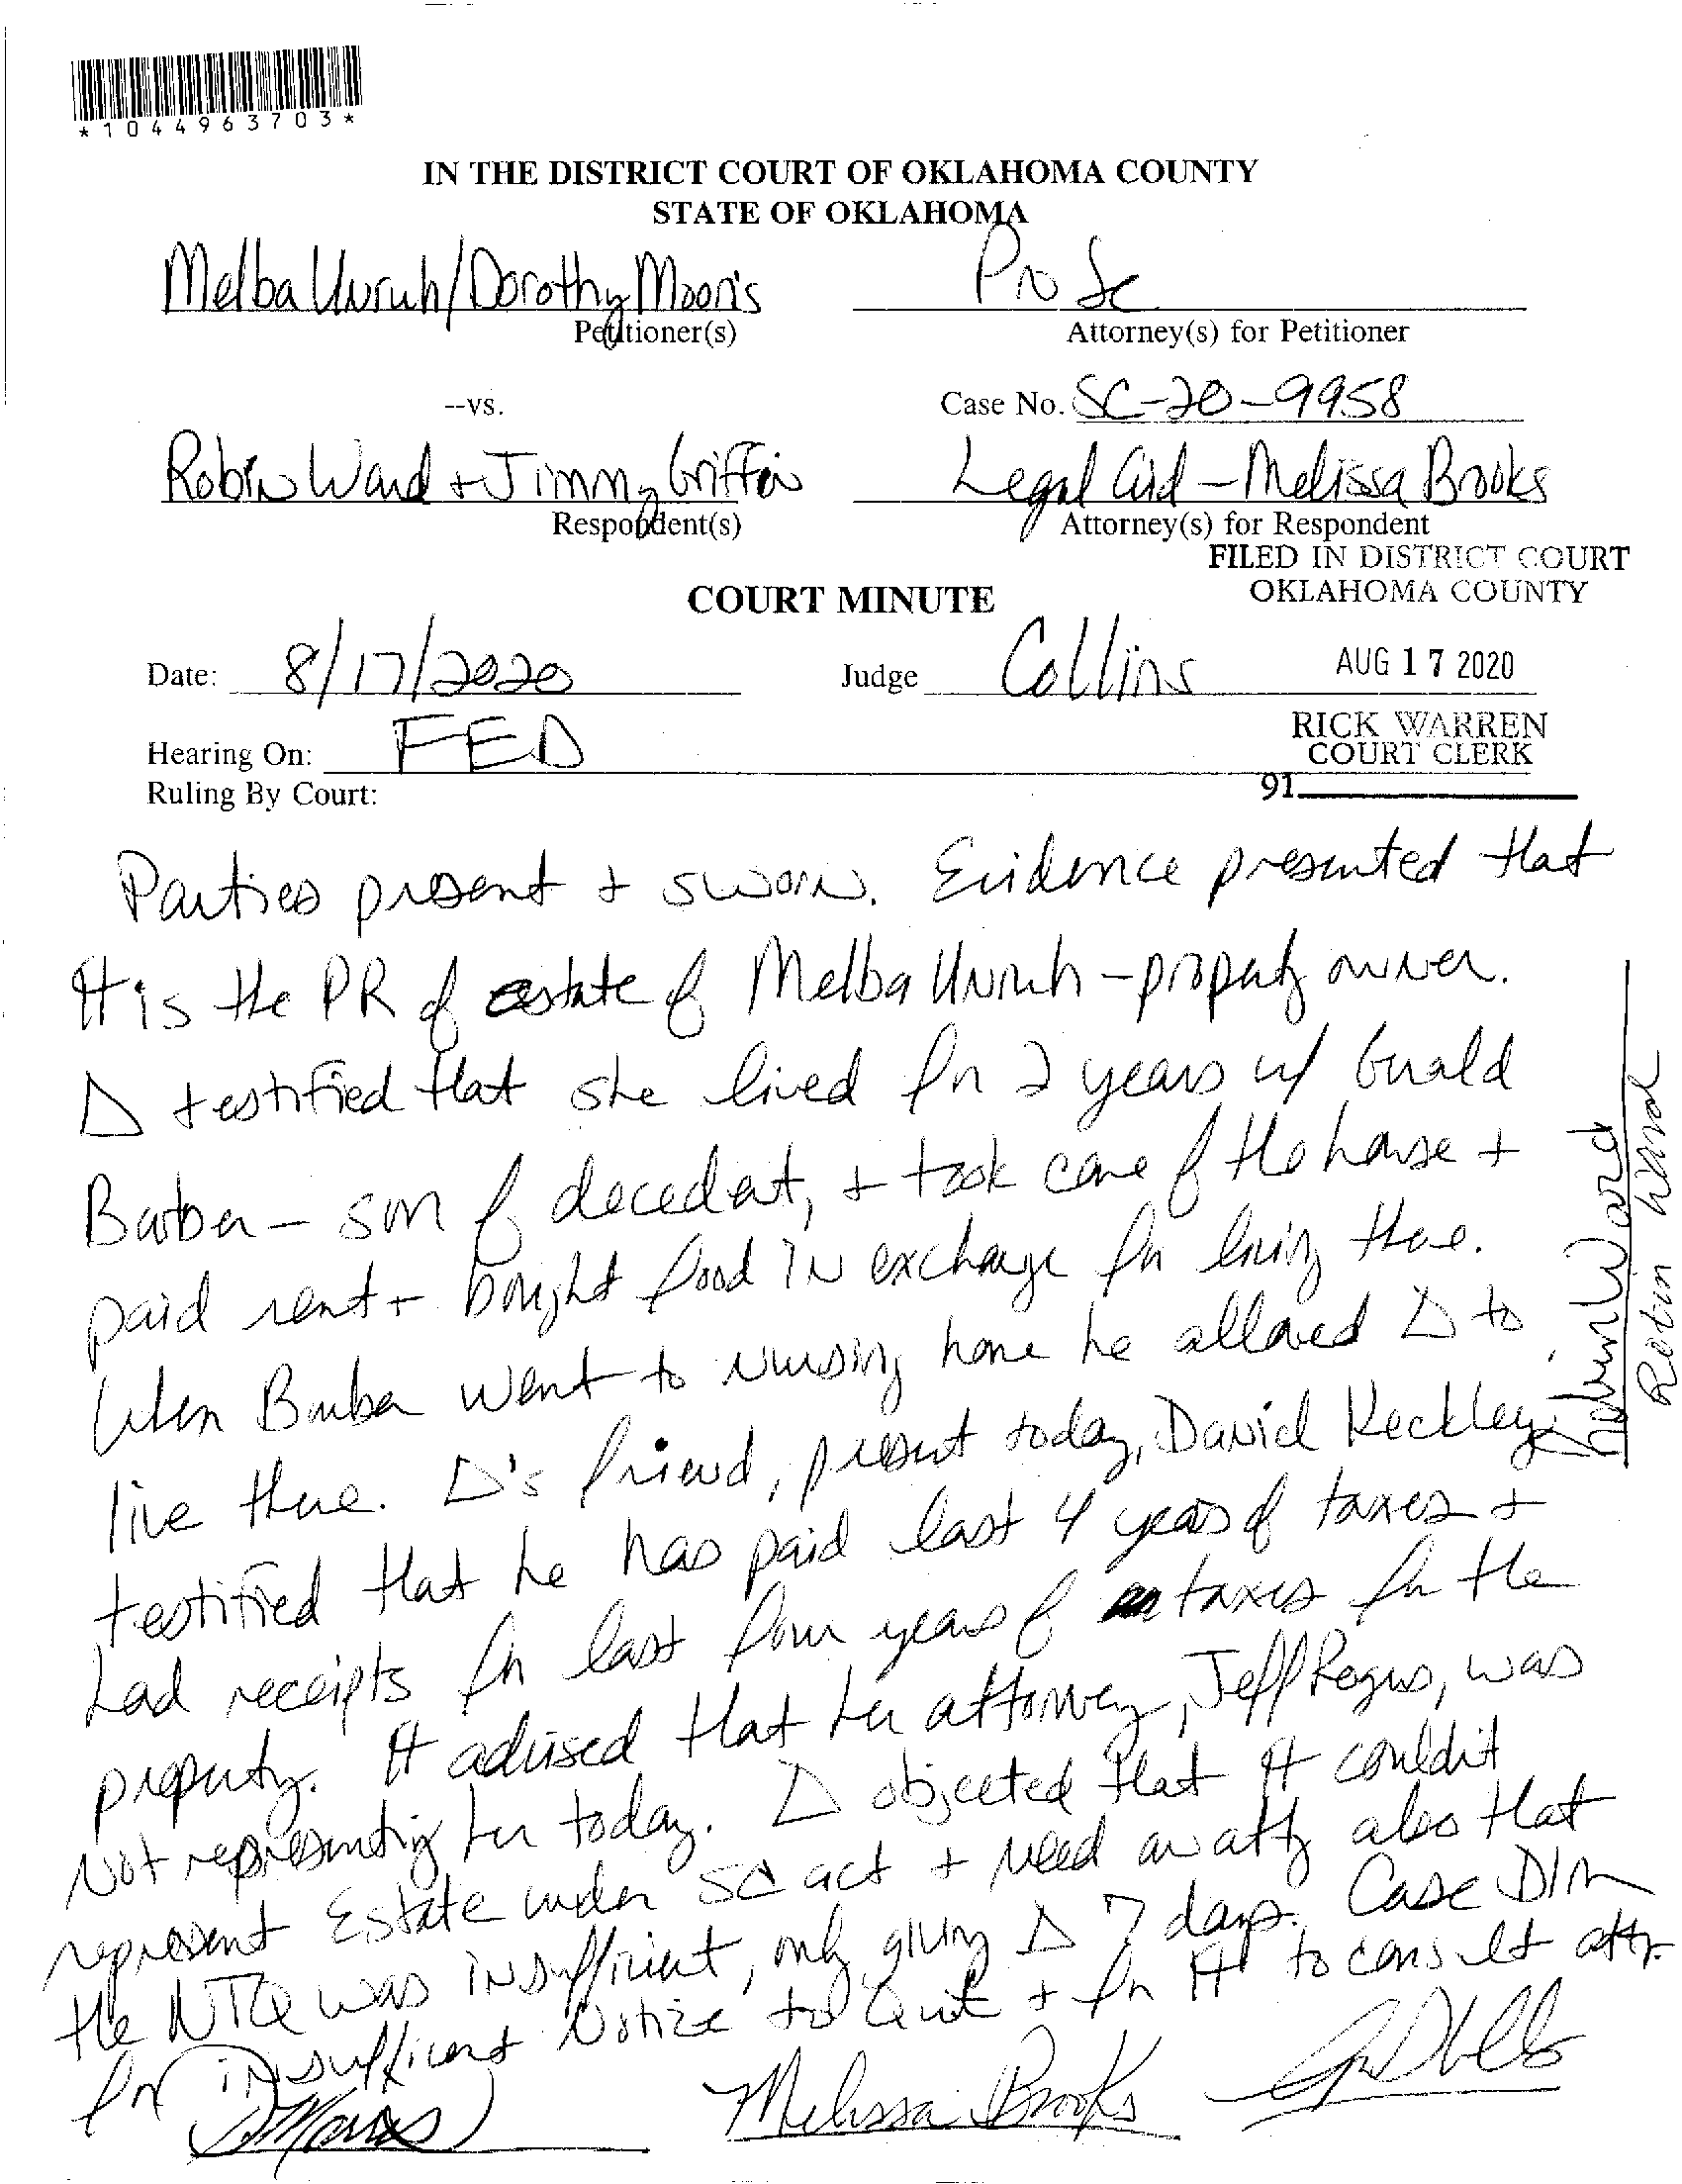 *1044963703*
IN THE DISTRICT COURT OF OKLAHOMA COUNTY
STATE OF OKLAHOMA
Melba Unruh/Dorothy Moons Pro Se
Petitioner(s) Attorney(s) for Petitioner
--vs. Case No. SC-20-9958
Robin Ward + Jimmy Griffin Legal Aid - Melissa Brooks
Respondent(s) Attorney(s) for Respondent
FILED IN DISTRICT COURT
OKLAHOMA COUNTY
COURT MINUTE
Date: 8/17/2020 Judge Collins AUG 17 2020
Hearing On: FED RICK WARREN
COURT CLERK
Ruling By Court: 91
Parties present + sworn. Evidence presented that
π is the PR of estate of Melba Unruh - property owner.
Δ testified that she lived for 2 years w/ Gerald
Barber - son of decedent, + took care of the house +
paid rent + bought food in exchange for living there.
When Barber went to nursing home he allowed Δ to
live there. Δ's friend, present today, David Keckley
testified that he has paid last 4 years of taxes +
had receipts for last four years of taxes for the
property. π advised that her attorney, Jeff Regus, was
not representing her today. Δ objected that π couldn't
represent Estate under SC act + need an atty also that
the NTQ was insufficient, only giving Δ 7 days. Case DIM
for insufficient Notice to Quit + for π to consult atty.
Melissa Brooks
Robin Ward
Robin Ward